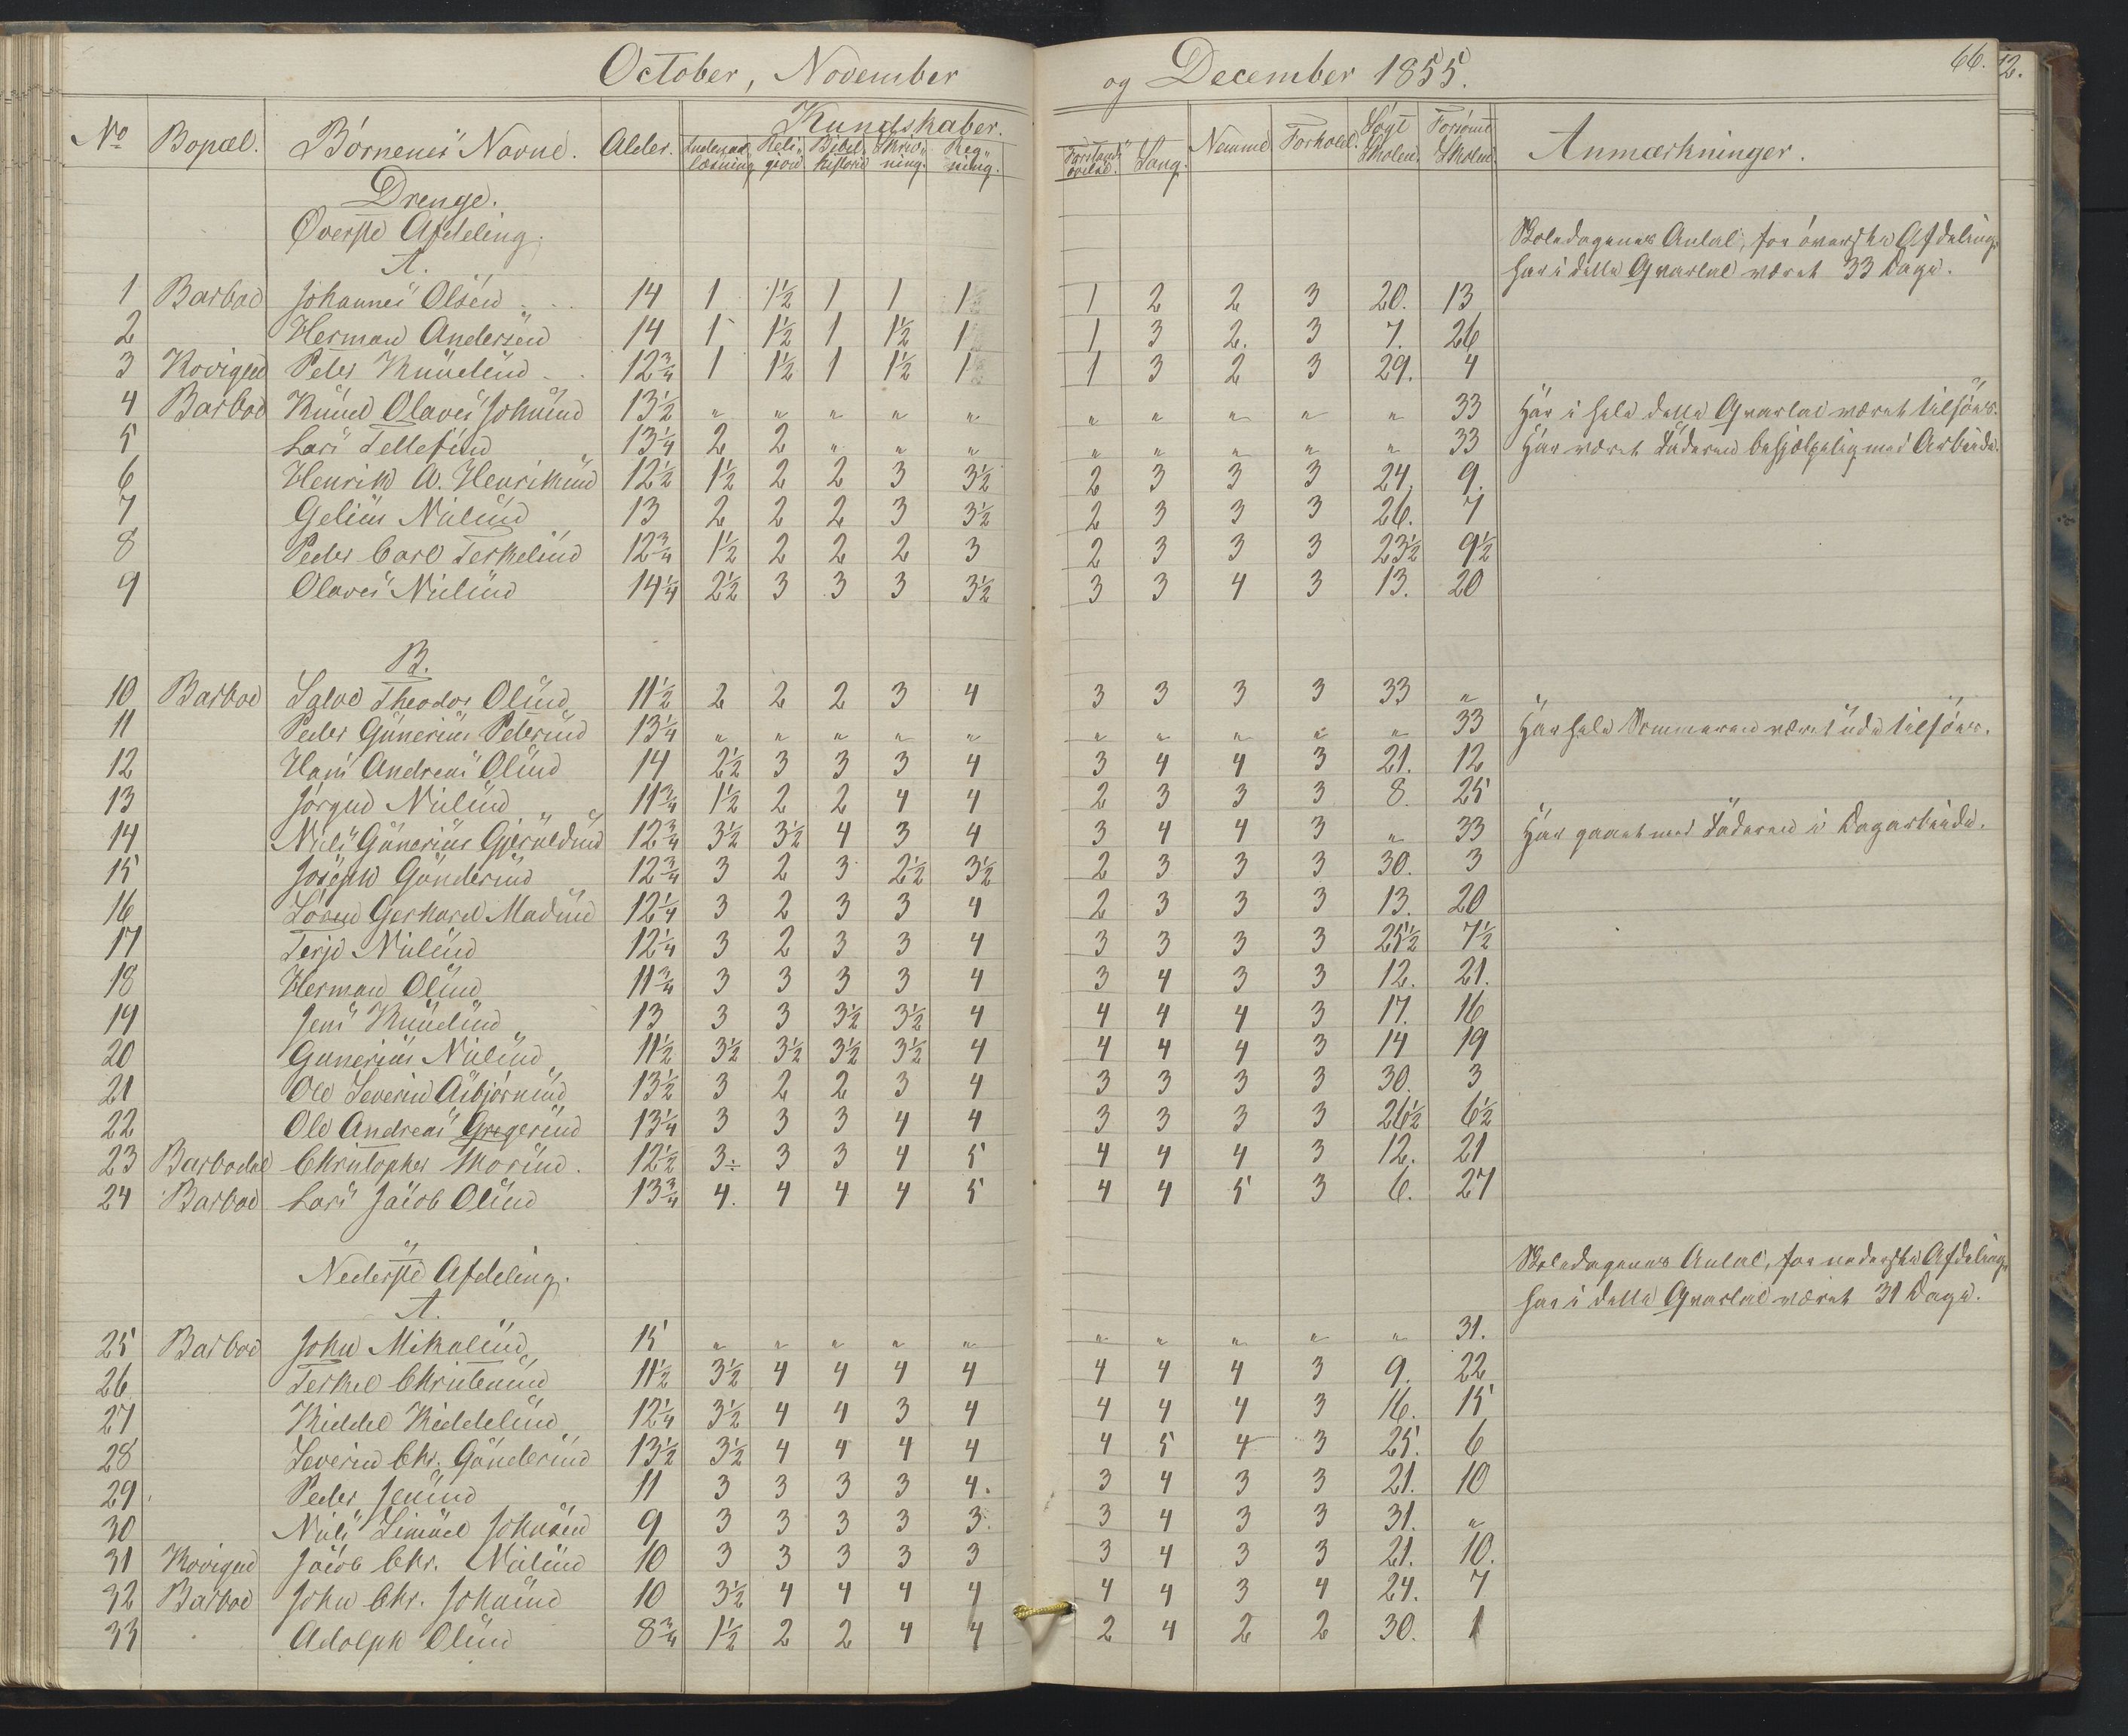 October, November og December 1855.
66.
12.
No Bopæl. Børnenes Navne. Alder. Kundskaber. Nemme Forhold. Søgt Skolen. Forsømt Skolen. Anmærkninger.
Indenadlæsning Religion Bibelhistorie Skrivning. Regning. Sang.
Drenge.
Øverste Afdeling.
Skoledagenes Antal, for øverste Afdeling,
A.
har i dette Qvartal været 33 Dage.
1 Barboe Johannes Olsen 14 1 1½ 1 1 1 1 2 2 3 20. 13
2 Herman Andersen 14 1 1½ 1 1½ 1 1 3 2. 3 7. 26
3 Kovigen Peder Knudsen 12¾ 1 1½ 1 1½ 1 1 3 2 3 29. 4
4 Barboe Knud Olaves Johnsen 13½ " " " " " " " " " " 33 Har i hele dette Qvartal været tilsøes.
5 Lars Tellefsen 13¼ 2 2 " " " " " " " " 33 Har været Faderen behjælpelig med Arbeide.
6 Henrik A. Henriksen 12½ 1½ 2 2 3 3½ 2 3 3 3 24. 9.
7 Gelius Nilsen 13 2 2 2 3 3½ 2 3 3 3 26. 7
8 Peder Carl Terkelsen 12¾ 1½ 2 2 2 3 2 3 3 3 23½ 9½
9 Olaves Nilsen 14¼ 2½ 3 3 3 3½ 3 3 4 3 13. 20
B.
10 Barboe Salve Theodor Olsen 11½ 2 2 2 3 4 3 3 3 3 33 "
11 Peder Gunerius Pedersen 13¼ " " " " " " " " " " 33 Har hele Sommeren været ude tilsøes.
12 Hans Andreas Olsen 14 2½ 3 3 3 4 3 4 4 3 21. 12
13 Jørgen Nilsen 11¾ 1½ 2 2 4 4 2 3 3 3 8. 25
14 Nils Gunerius Gjeruldsen 12¾ 3½ 3½ 4 3 4 3 4 4 3 " 33 Har gaaet med Faderen i Dagarbeide.
15 Joseph Gundersen 12¾ 3 2 3 2½ 3½ 2 3 3 3 30. 3
16 Søren Gerhard Madsen 12¼ 3 2 3 3 4 2 3 3 3 13. 20
17 Terje Nilsen 12¼ 3 2 3 3 4 3 3 3 3 25½ 7½
18 Herman Olsen 11¾ 3 3 3 3 4 3 4 3 3 12. 21.
19 Jens Knudsen 13 3 3 3½ 3½ 4 4 4 4 3 17. 16
20 Gunerius Nilsen 11½ 3½ 3½ 3½ 3½ 4 4 4 4 3 14 19
21 Ole Severin Asbjørnsen 13½ 3 2 2 3 4 3 3 3 3 30. 3
22 Ole Andreas Gregersen 13¼ 3 3 3 4 4 3 3 3 3 26½ 6½
23 Barbodal Christopher Thorsen. 12½ 3÷ 3 3 4 5 4 4 4 3 12. 21
24 Barboe Lars Jacob Olsen 13¾ 4. 4 4 4 5 4 4 5 3 6. 27
Nederste Afdeling.
Skoledagenes Antal, for nederste Afdeling,
A.
har i dette Qvartal været 31 Dage.
25 Barboe John Mikalsen 15 " " " " " " " " " " 31.
26 Terkel Christensen 11½ 3½ 4 4 4 4 4 4 4 3 9. 22
27 Kiddel Kiddelsen 12¼ 3½ 4 4 3 4 4 4 4 3 16. 15
28 Severin Chr. Gundersen 13½ 3½ 4 4 4 4 4 5 4 3 25. 6
29 Peder Jensen 11 3 3 3 3 4. 3 4 3 3 21. 10
30 Nils Simael Johnsen 9 3 3 3 3 3. 3 4 3 3 31. "
31 Kovigen Jacob Chr. Nilsen 10 3 3 3 3 3 3 4 3 3 21. 10.
32 Barboe John Chr. Johnsen 10 3½ 4 4 4 4 4 4 3 4 24. 7
33 Adolph Olsen 8¾ 1½ 2 2 4 4 2 4 2 2 30. 1